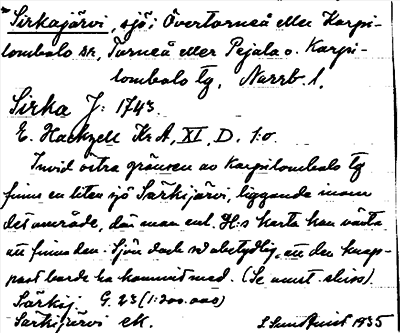 Sirkajärvi, sjö; Övertorneå eller Karpi-
lombolo sn, Torneå eller Pajala o. Karpi-
lombolo tg, Norrb. l.
Sirka J: 1743
E. Hackzell KrA, XI, D, 1:a
Invid östra gränsen av Karpilombolo tg
finns en liten sjö Särkijärvi, liggande inom
det område, där man enl. H:s karta kan vänta
att finna den. Sjön dock så obetydlig, att den knap-
past borde ha kommit med. (Se annat skiss)
Särkij. G. 23 (1:200.000)
Särkijärvi ek. 1935